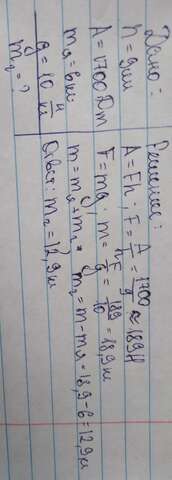 Дано:
h = 9 м
A = 1700 Дж
mя = 6 кг
g = 10 Н/кг
m2 = ?
Решение:
A = Fh; F = A/h = 1700/9 ≈ 189 Н
F = mg; m = F/g = 189/10 = 18,9 кг
m = mя + m2 m2 = m - mя = 18,9 - 6 = 12,9 кг
Ответ: m2 = 12,9 кг